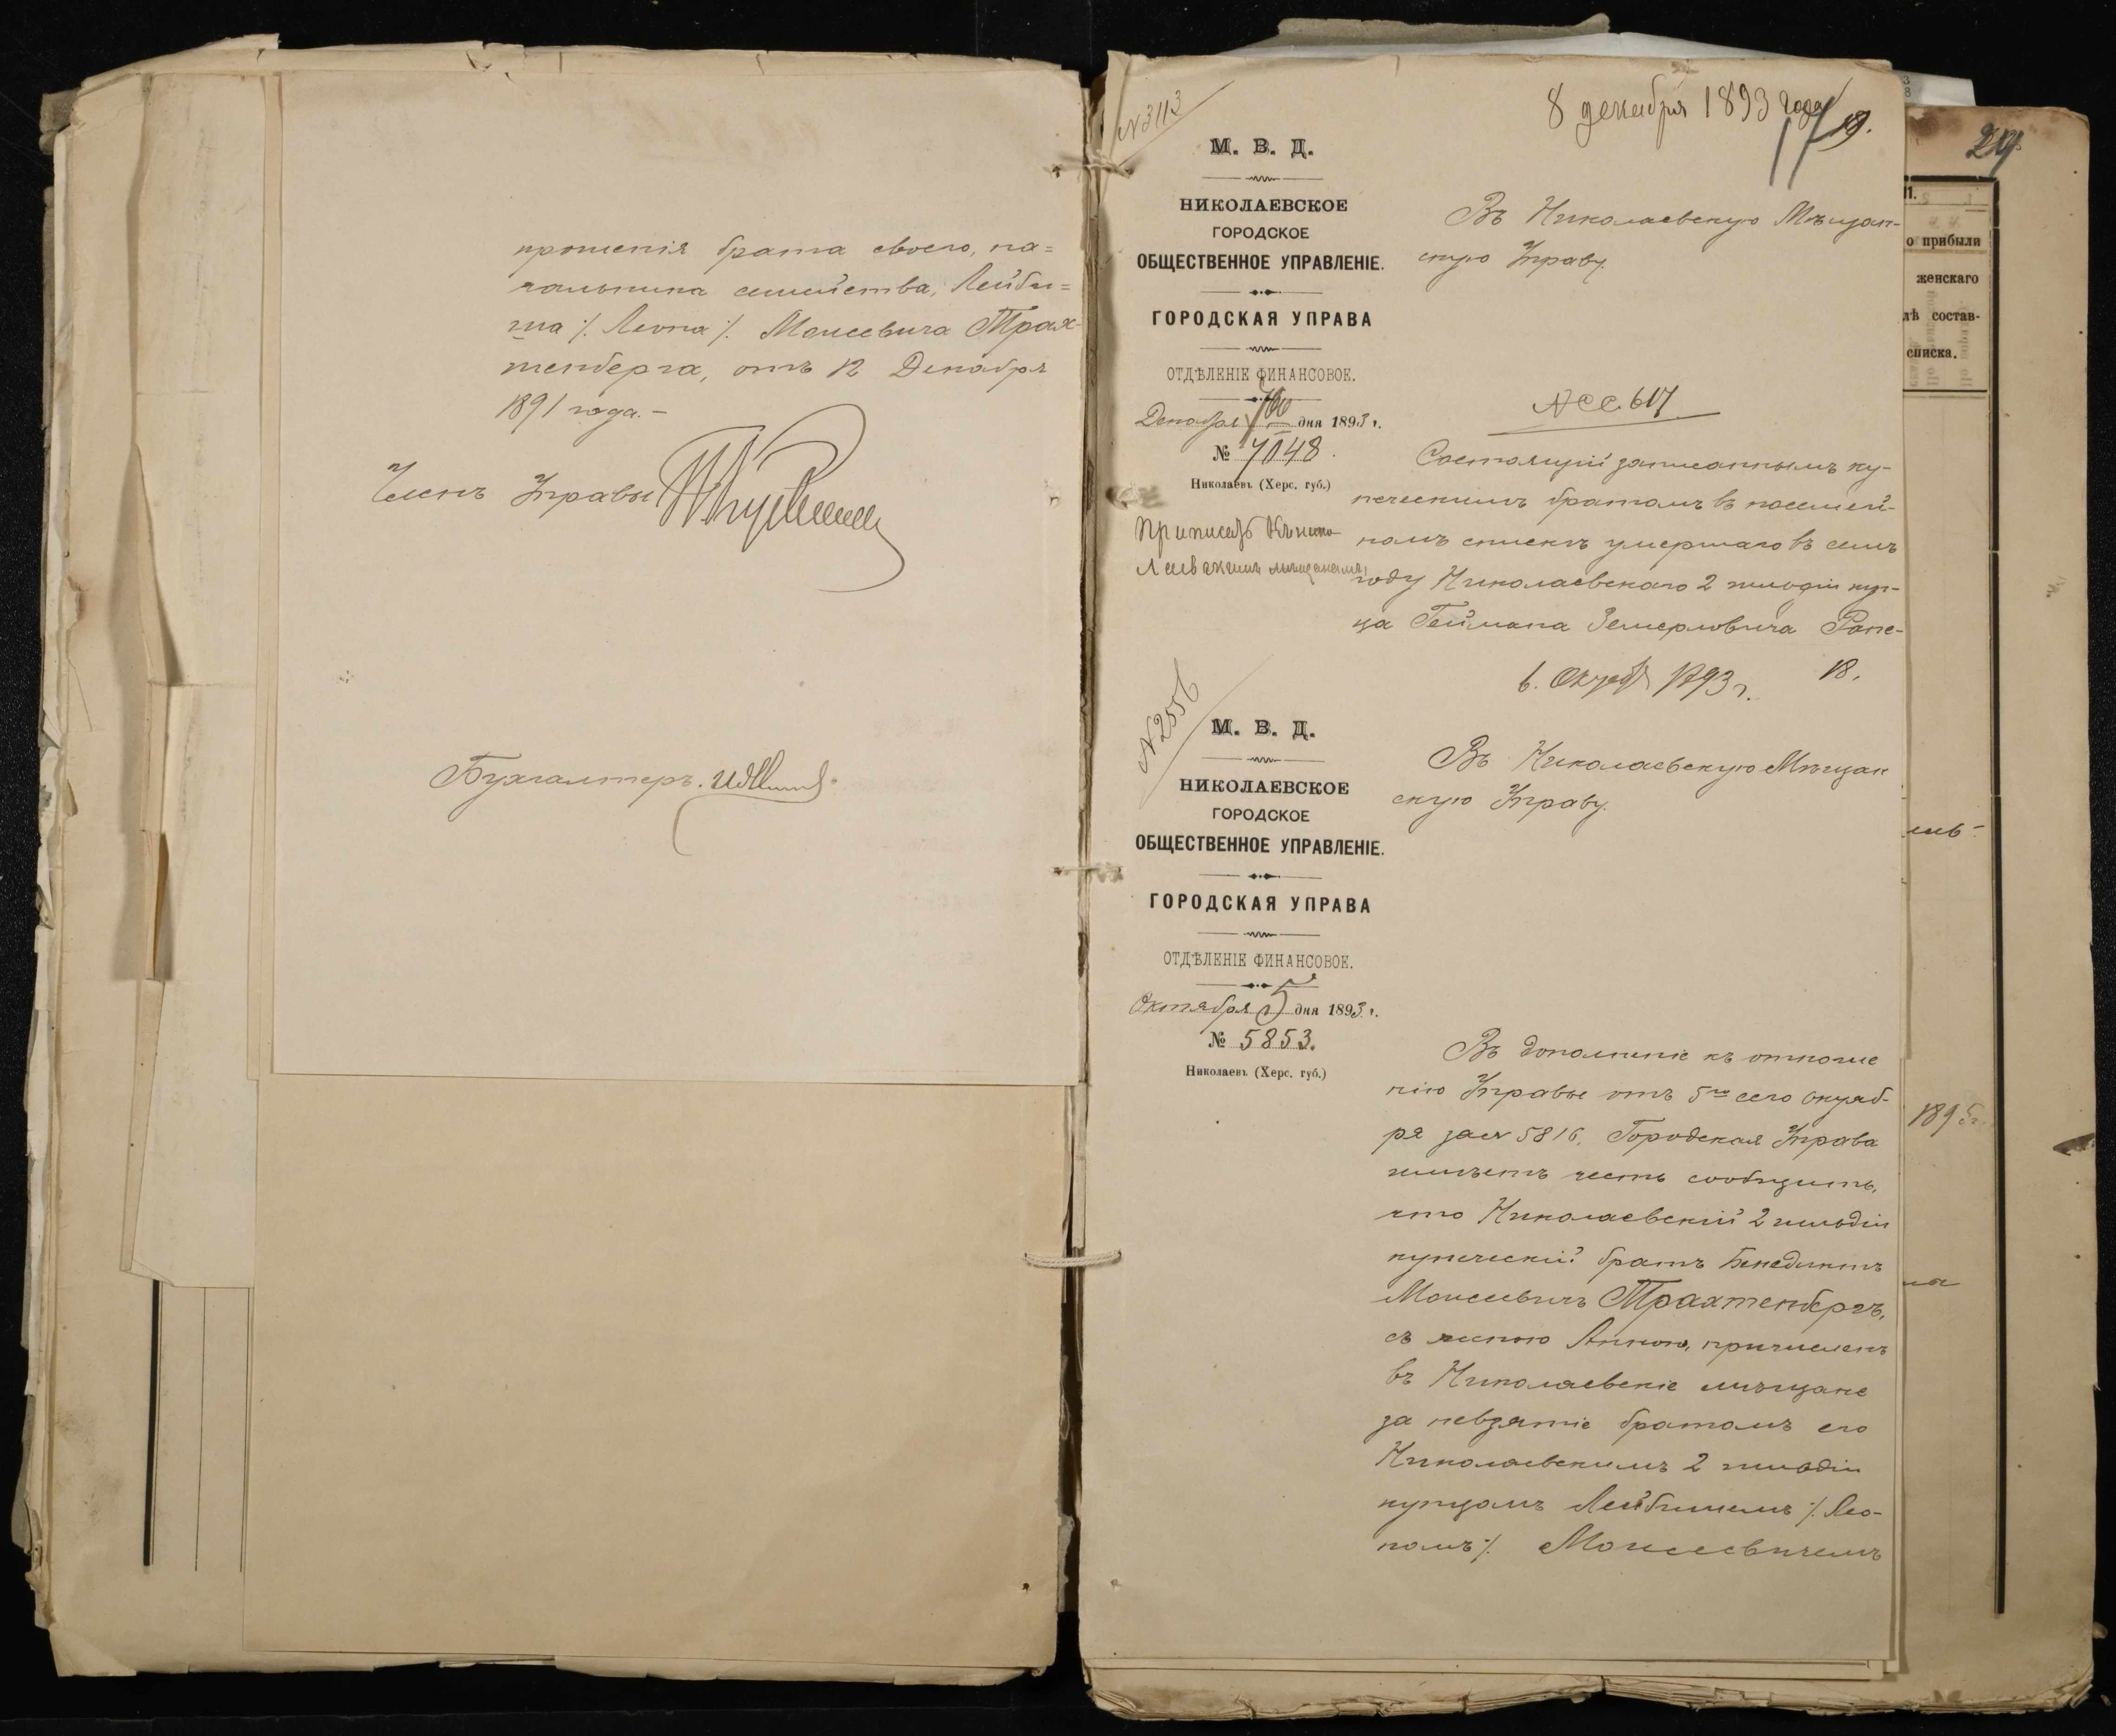 прошенія брата своего, на=
чальника семейства, Лейби=
ша /. Леона /. Моисеевича Трах-
тенберга, отъ 12 Декабря
1891 года. –
Членъ Управы
Бухгалтеръ.
N 3113
8 декабря 1893 года
19.
М. В. Д.
НИКОЛАЕВСКОЕ
ГОРОДСКОЕ
ОБЩЕСТВЕННОЕ УПРАВЛЕНІЕ.
ГОРОДСКАЯ УПРАВА
ОТДѢЛЕНІЕ ФИНАНСОВОЕ.
Декабря дня 1893 г.
№ 7048.
Николаевъ (Херс. губ.)
Приписать къ Нико-
лаевскимъ мѣщанамъ
Въ Николаевскую Мѣщан-
скую Управу.
Состоящій записаннымъ ку-
печескимъ братомъ въ посемей-
номъ спискѣ умершаго въ семъ
году Николаевскаго 2 гильдіи куп-
ца Геймана Земерловича Рапе-
6. Октяб 1893 г.
18.
N 2556
М. В. Д.
НИКОЛАЕВСКОЕ
ГОРОДСКОЕ
ОБЩЕСТВЕННОЕ УПРАВЛЕНІЕ.
ГОРОДСКАЯ УПРАВА
ОТДѢЛЕНІЕ ФИНАНСОВОЕ.
Октября 5 дня 1893 г.
№ 5853.
Николаевъ (Херс. губ.)
Въ Николаевскую Мѣщан
скую Управу.
Въ дополненіе къ отноше
нію Управы отъ 5го сего октяб-
ря за № 5816, Городская Управа
имѣетъ честь сообщить,
что Николаевскій 2 гильдіи
купеческій братъ Бенедиктъ
Моисеевичъ Трахтенбергъ,
съ женою Анною, причисленъ
въ Николаевскіе мѣщане
за невзятіе братомъ его
Николаевскимъ 2 гильдіи
купцомъ Лейбишемъ /. Лео-
номъ /. Моисеевичемъ
о прибыли
женскаго
лѣ состав-
списка.
189